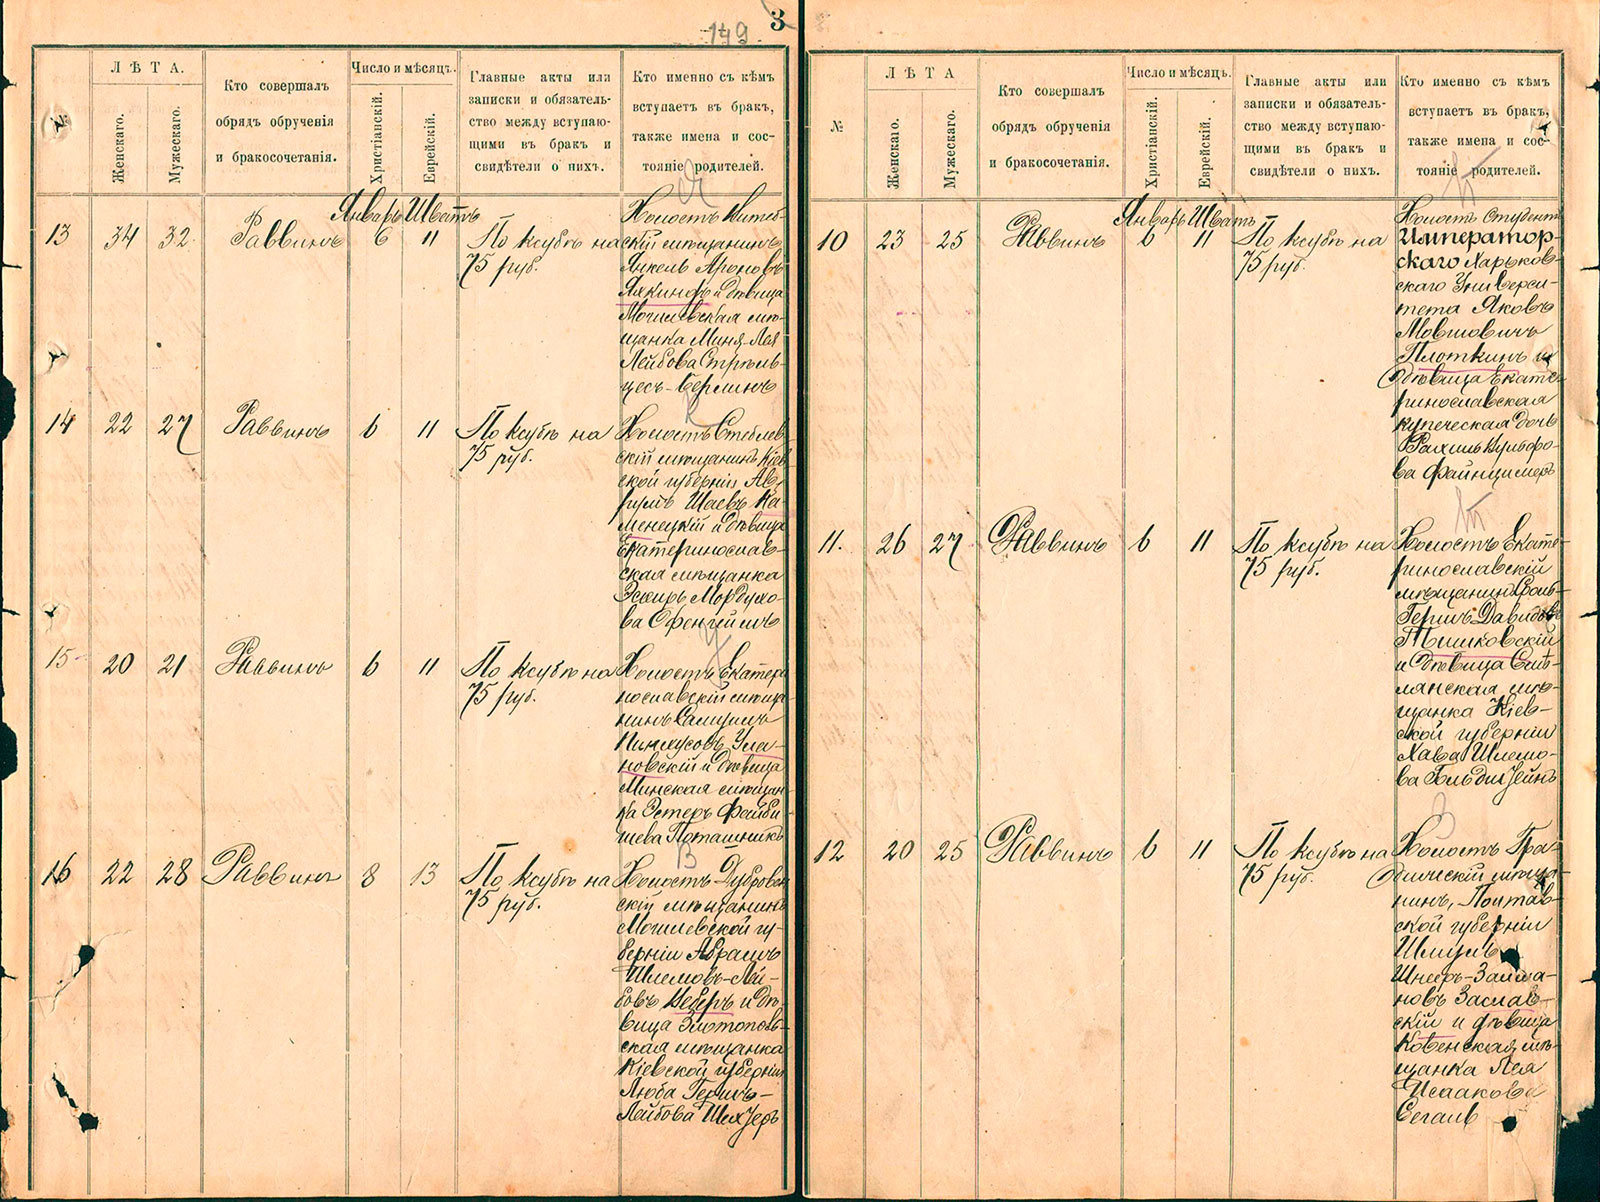 3
149
№
ЛѢТА.
Женскаго.
Мужескаго.
Кто совершалъ
обрядъ обрученія
и бракосочетанія.
Число и мѣсяцъ.
Христіанскій.
Еврейскій.
Главные акты или
записки и обязатель-
ство между вступаю-
щими въ бракъ и
свидѣтели о нихъ.
Кто именно съ кѣмъ
вступаетъ въ бракъ,
также имена и сос-
тояніе родителей.
Январь Шватъ
13 34 32 Раввинъ 6 11 По ксубѣ на
75 руб.
Холостъ Витеб-
скій мѣщанинъ
Янкель Ароновъ
Яхкинфъ и дѣвица
Могилевская мѣ-
щанка Миня-Лея
Лейбова Стрѣль-
цесъ-Берлинъ
14 22 27 Раввинъ 6 11 По ксубѣ на
75 руб.
Холостъ Стеблев-
скій мѣщанинъ Кіев-
ской губерніи Ав-
румъ Шаевъ Ка-
менецкій и дѣвица
Екатеринослав-
ская мѣщанка
Эсѳирь Мордухо-
ва Офенгеймъ
15 20 21 Раввинъ 6 11 По ксубѣ на
75 руб.
Холостъ Екатери
нославскій мѣща
нинъ Самуилъ
Пинхусовъ Ула-
новскій и дѣвица
Минская мѣщан-
ка Эстеръ Файби-
шева Поташникъ
16 22 28 Раввинъ 8 13 По ксубѣ на
75 руб.
В
Холостъ Дубровен
скій мѣщанинъ
Могилевской гу-
берніи Абрамъ
Шлемовъ-Лей-
бовъ Веберъ и дѣ-
вица Златополь-
ская мѣщанка
Кіевской губерніи
Люба Гершъ-
Лейбова Шехзеръ
№
ЛѢТА
Женскаго.
Мужескаго.
Кто совершалъ
обрядъ обрученія
и бракосочетанія.
Число и мѣсяцъ.
Христіанскій.
Еврейскій.
Главные акты или
записки и обязатель-
ство между вступаю-
щими въ бракъ и
свидѣтели о нихъ.
Кто именно съ кѣмъ
вступаетъ въ бракъ,
также имена и сос-
тояніе родителей.
Январь Шватъ
10 23 25 Раввинъ 6 11 По ксубѣ на
75 руб.
Холостъ студентъ
Император-
скаго Харьков-
скаго Универси-
тета Яковъ
Мовшовичъ
Плоткинъ и
дѣвица Екате-
ринославская
купеческая дочь
Рахиль Вульфо-
ва Файнциммеръ
11. 26 27 Раввинъ 6 11 По ксубѣ на
75 руб.
Холостъ Екате-
ринославскій
мѣщанинъ Сроль-
Гершъ Давидовъ
Тышковскій
и дѣвица Смѣ-
лянская мѣ-
щанка Кіев-
ской губерніи
Хава Шлемо-
ва Гольдштейнъ
12 20 25 Раввинъ 6 11 По ксубѣ на
75 руб.
З
Холостъ Гра-
дижскій мѣща-
нинъ, Полтав-
ской губерніи
Шмуль
Шнееръ-Залма-
новъ Заслав-
скій и дѣвица
Ковенская мѣ-
щанка Лея
Исаакова
Сегалъ